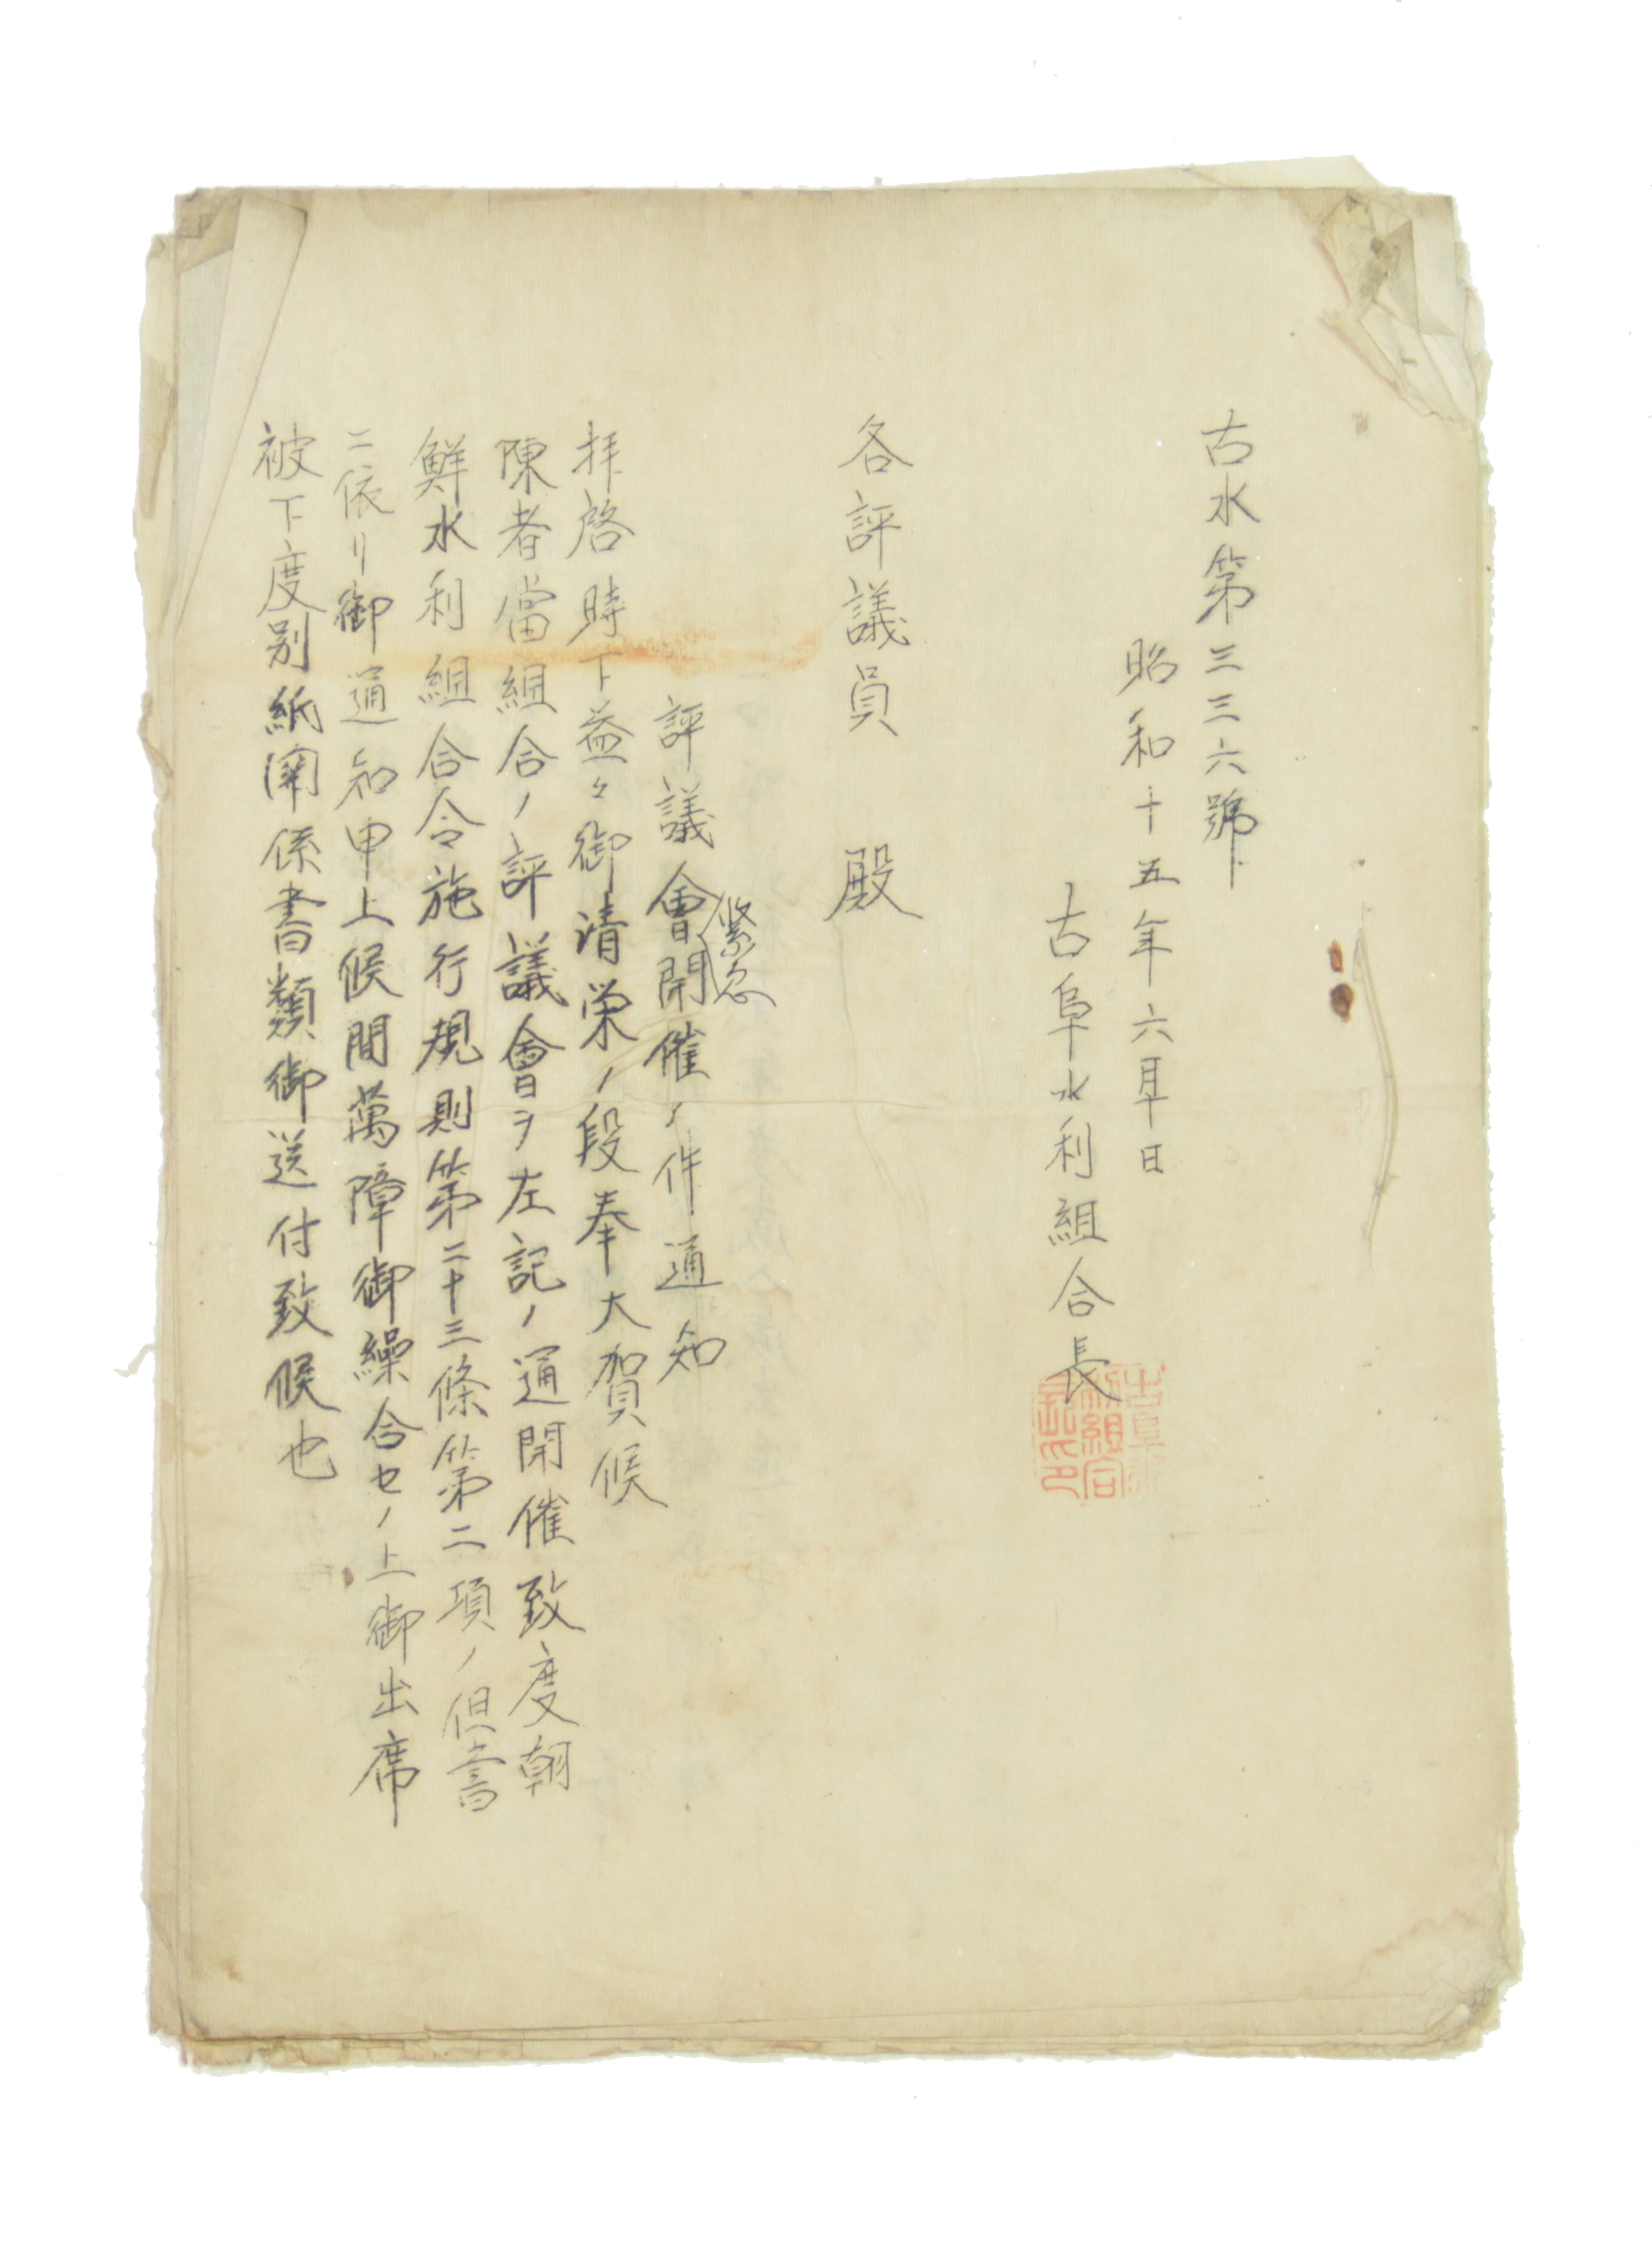 古水第三三六號
昭和十五年六月 日
古阜水利組合長
古阜水利組合長印
各評議員 殿
緊急
評議會開催ノ件通知
拝啓時下益々御清栄ノ段奉大賀候
陳者當組合ノ評議會ヲ左記ノ通開催致度朝
鮮水利組合令施行規則第二十三條第二項ノ但書
ニ依リ御通知申上候間萬障御繰合セノ上御出席
被下度別紙関係書類御送付致候也